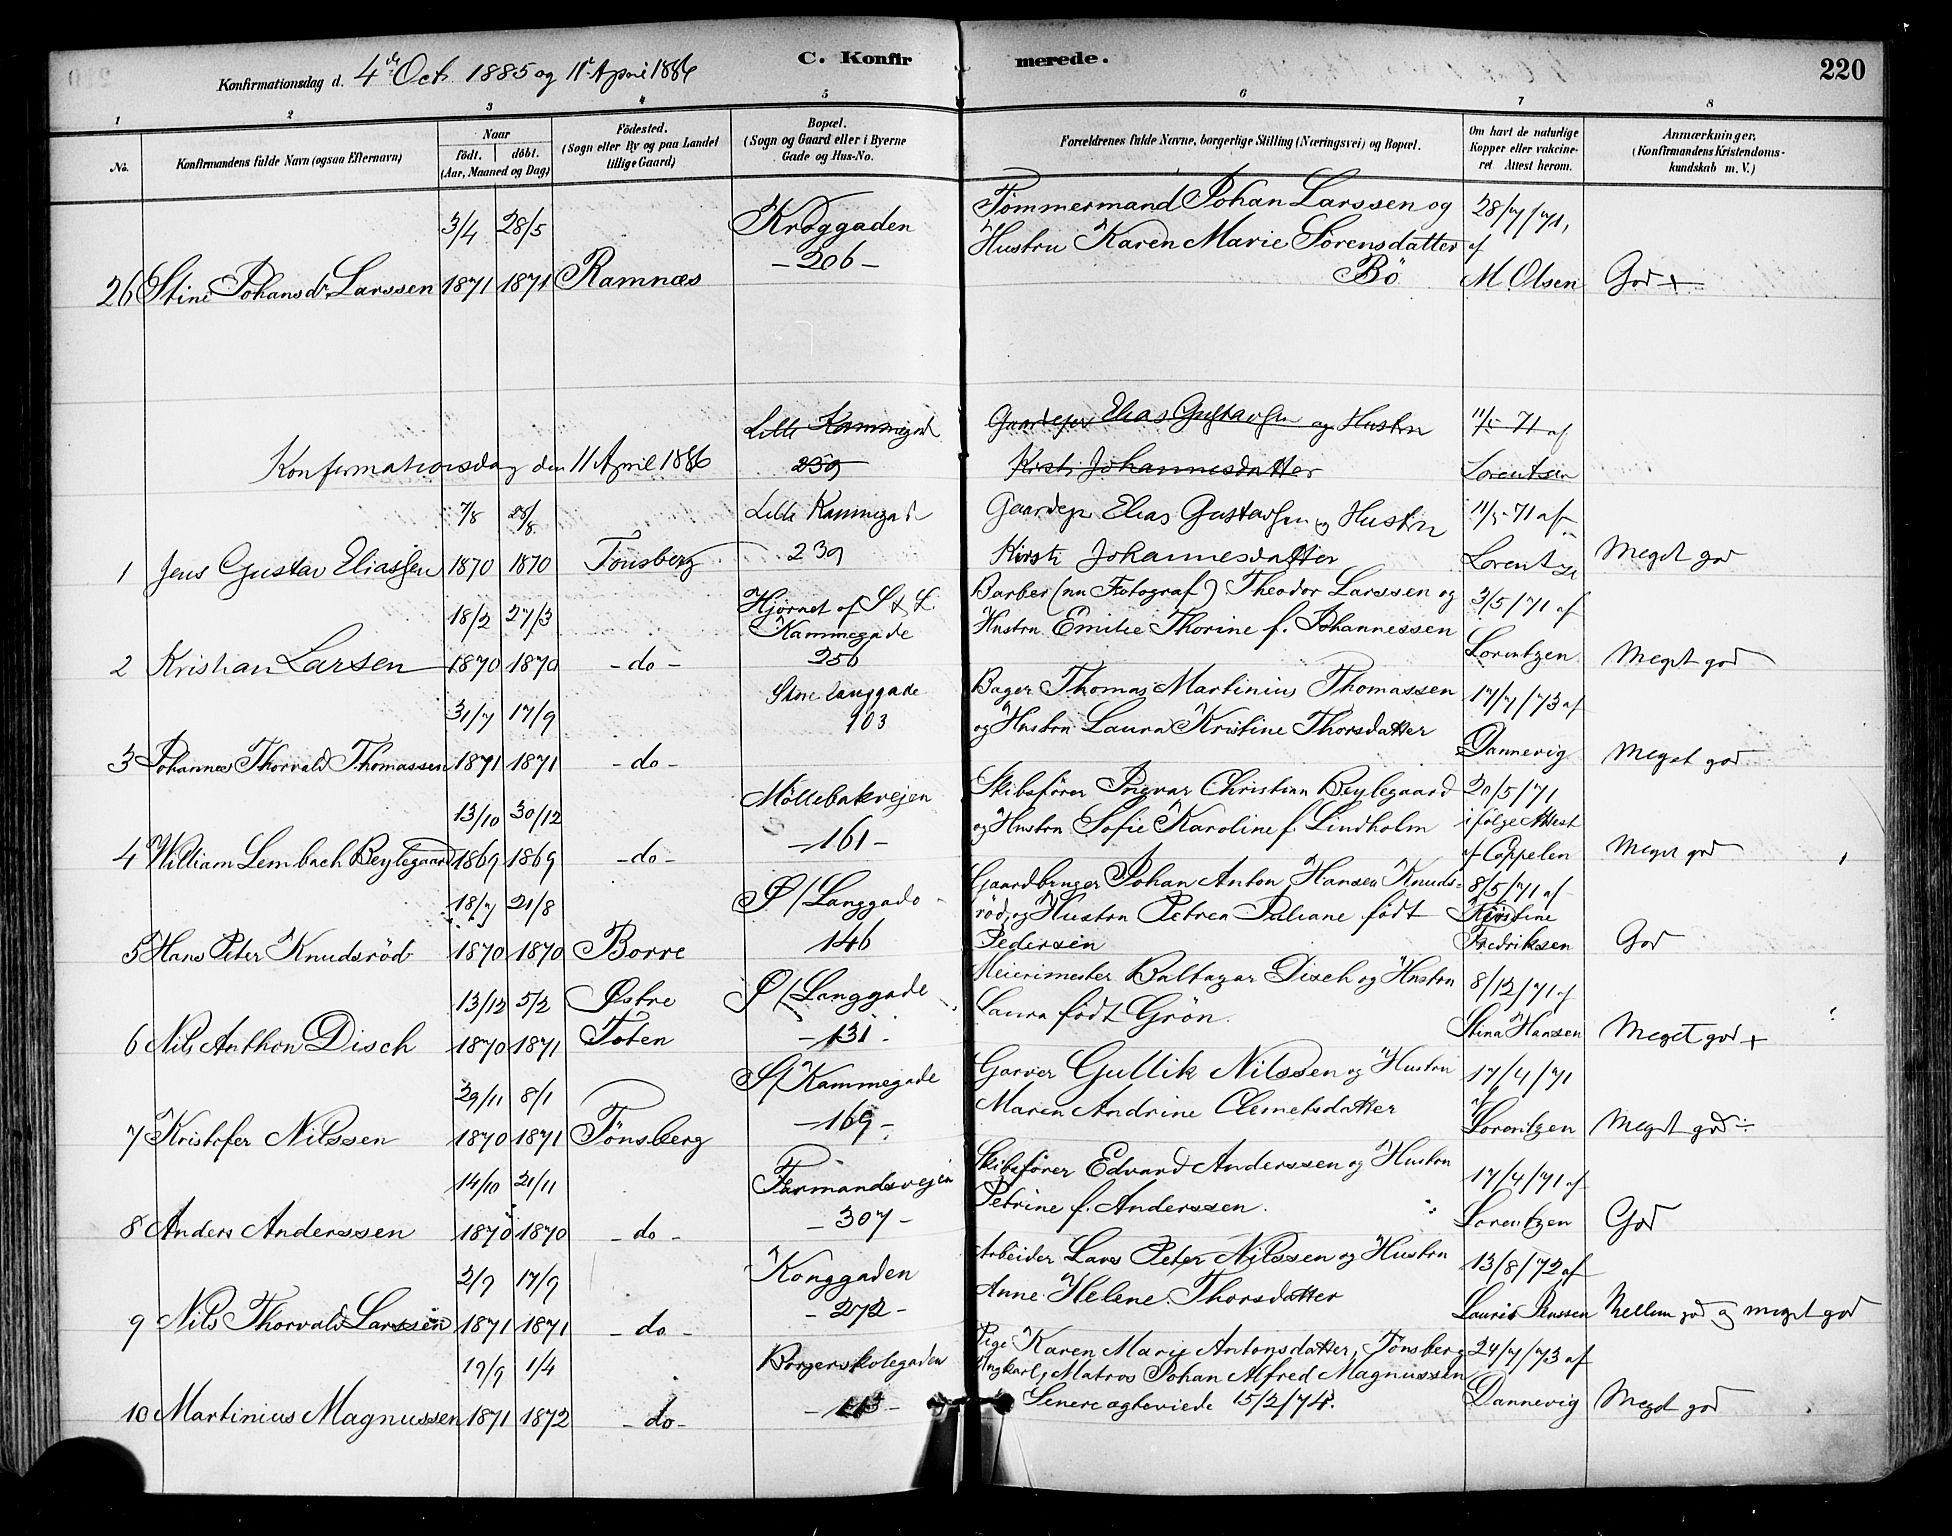 Konfirmationsdag d. 4de Oct. 1885 og 11te April 1886
C. Konfirmerede.
220
1 2 3 4 5 6 7 8
No.
Konfirmandens fulde Navn (ogsaa Efternavn)
Naar
födt. döbt.
(Aar, Maaned og Dag)
Födested.
(Sogn eller By og paa Landet
tillige Gaard)
Bopæl.
(Sogn og Gaard eller i Byerne
Gade og Hus-No.
Forældrenes fulde Navne, borgerlige Stilling (Næringsvei) og Bopæl.
Om havt de naturlige
Kopper eller vakcine-
ret Attest herom.
Anmærkninger.
(Konfirmandens Kristendoms-
kundskab m. V.)
3/4 28/5 Kroggaden Tömmermand Johan Larssen og 28/7/71,
Hustru Karen Marie Sørensdatter af
26 Stine Johansdr. Larssen 1871 1871 Ramnæs - 206 - Bö M. Olsen God +
Lille Kammegade Gaardejer Elias Gustavssen og Hustru 11/5 71 af
Konfirmationsdag den 11 April 1886 239 Kirsti Johannesdatter Lorentsen
7/8 28/8 Lille Kammegade Gaardejer Elias Gustavssen og Hustru 11/5 71 af
1 Jens Gustav Eliassen 1870 1870 Tönsberg 239 Kirsti Johannesdatter Lorentzen Meget god
18/2 27/3 Hjörnet af S & L. Barber (nu Fotograf) Theodor Larssen og 3/5/71 af
Kammegade Hustru Emilie Thorine f. Johannessen
2 Kristian Larsen 1870 1870 - do - 256 Lorentzen Meget god
31/7 17/9 Store Langgade Bager Thomas Martinius Thomassen 17/7/73 af
103 og Hustru Laura Kristine Thorsdatter
3 Johannes Thorvald Thomassen 1871 1871 - do - Dannevig Meget god
13/10 30/12 Möllebakvejen Skibsförer Ingvar Christian Beylegaard 20/5/71
og Hustru Sofie Karoline f. Lindholm ifölge Attest
4 William Lembach Beylegaard 1869 1869 - do - - 161 - af Coppelen Meget god
18/7 21/8 Ø/Langgade Gaardbruger Johan Anton Hansen Knuds- 8/5/71 af
röd, og Hustru Petrea Juliane född Kirstine
5 Hans Peter Knudsröd 1870 1870 Borre 146 Pedersen Fredriksen God
13/12 5/2 Østre Ø/Langgade Meierimester Baltazar Disch og Hustru 8/12/71 af
6 Nils Anthon Disch 1870 1871 Toten - 131 - Laura född Grön. Stina Hansen Meget god +
29/11 8/1 S/Kammegade Garver Gullik Nilssen og Hustru 17/4/71
Maren Andrine Clemetsdatter af
7 Kristofer Nilssen 1870 1871 Tönsberg - 169 - Lorentzen Meget god ÷
14/10 21/11 Farmandsvejen Skibsförer Edvard Anderssen og Hustru 17/4/71 af
8 Anders Anderssen 1870 1870 - do - - 307 - Petrine f. Anderssen. Lorentzen God
2/9 17/9 Konggaden Arbeider Lars Peter Nilssen og Hustru 13/8/72 af
Anne Helene Thorsdatter
9 Nils Thorvald Larssen 1871 1871 - do - - 272 - Mellem god og meget god
19/9 1/4 Borgerskolegaden Pige Karen Marie Antonsdatter, Tönsberg 24/7/73 af
Ungkarl, Matros Johan Alfred Magnussen
10 Martinius Magnussen 1871 1872 - do - - 113 - Senere ægteviede 15/2/74. Dannevig Meget god